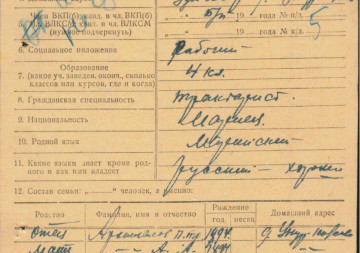 Член ВКП(б), канд. в чл. ВКП(б)
ВЛКСМ, канд. в чл. ВЛКСМ б/п
(нужное подчеркнуть) 19 года № п/б.
6. Социальное положение рабочий
7. Образование
(какое уч. заведен. окончил, сколько 4 кл.
классов или курсов, где и когда)
8. Гражданская специальность тракторист.
9. Национальность Мариец
10. Родной язык Марийский
11. Какие языки знает кроме род-
ного и как ими владеет русский - хорошо
12. Состав семьи: человек, а именно:
Родство Фамилия, имя и отчество Рождение Домашний адрес
год месяц
Отец
Мать А. А.